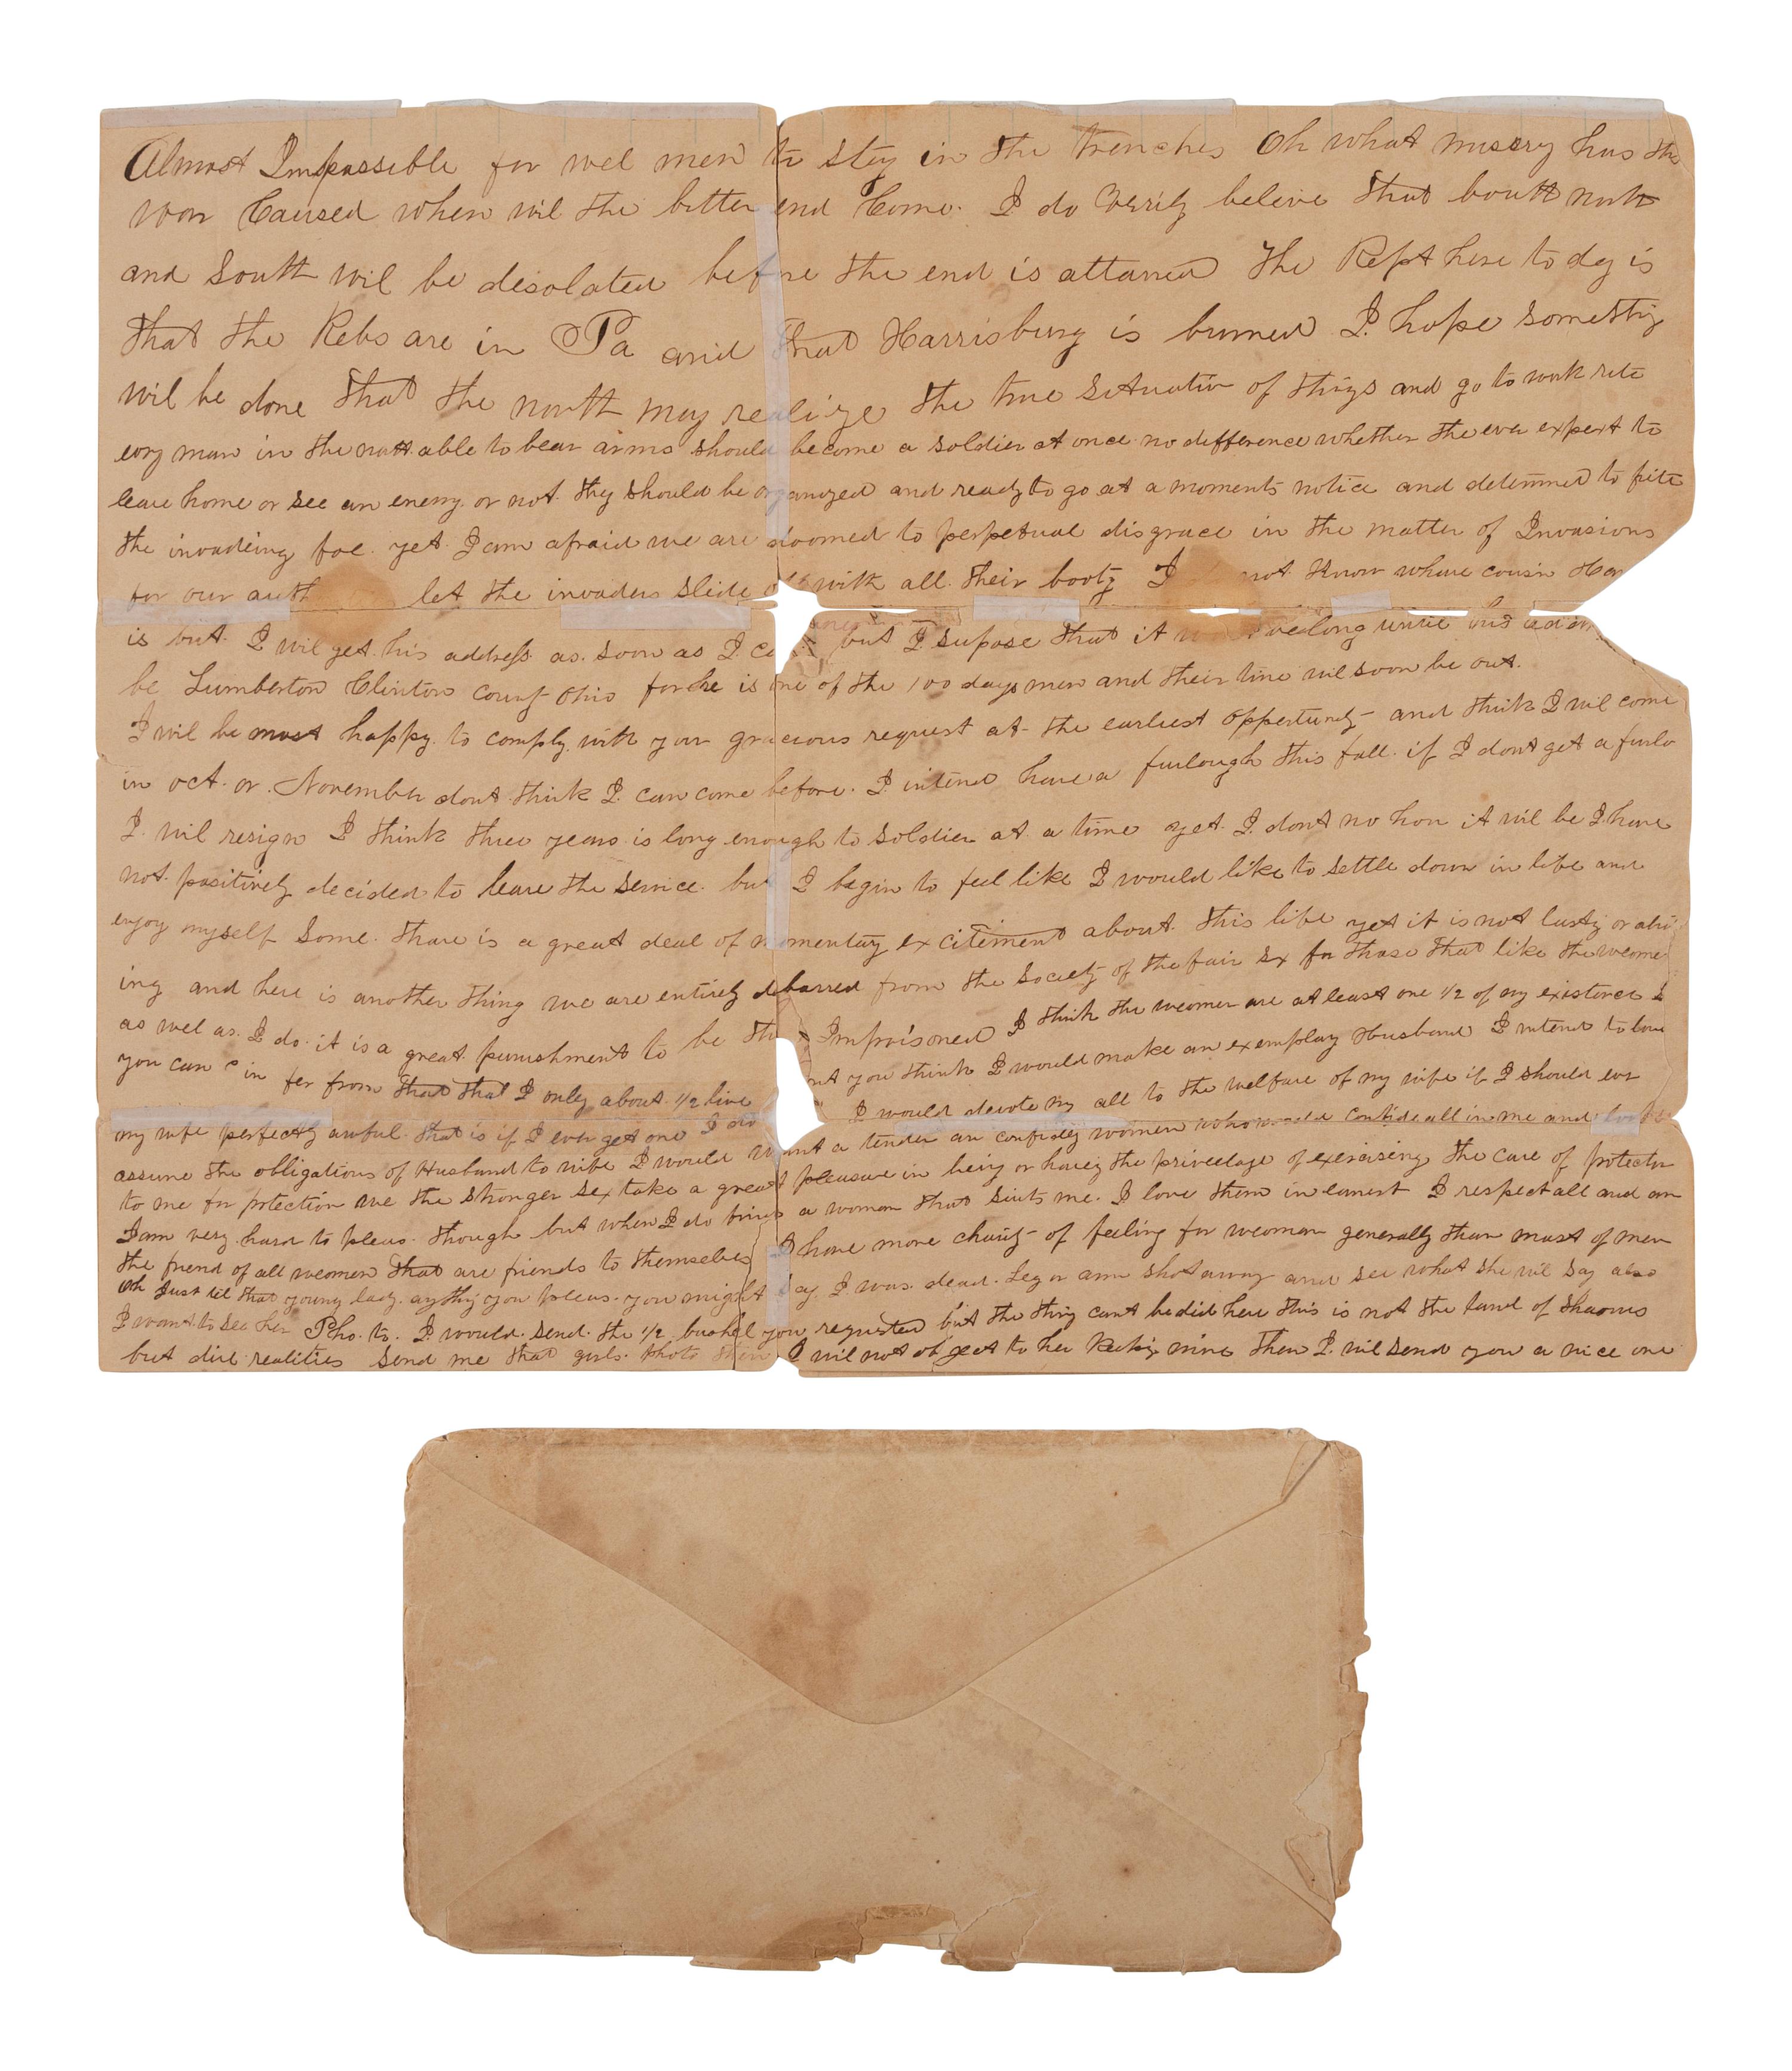 Almost Impossible for wel men to stay in the trenches Oh what misery has the
war Caused when wil the bitter end Come. I do Verily beleive that boutt north
and South wil be desolated before the end is attained The Rept here to day is
that the Rebs are in Pa and that Harrisburg is burned I hope something
wil be done that the north may realize the true situation of things and go to work rite
evry man in the nortt able to bear arms should become a soldier at once no difference whether the ever expert to
leave home or see an enemy or not they should be organized and ready to go at a moments notice and determined to fite
the invadeing foe. yet I am afraid we are doomed to perpetual disgrace in the matter of Invasions
for our auth let the invaders slide off with all their booty I not Know where cousin
is but I wil get his address as soon as I but I supose that it belong untill his
be Lumberton Clinton county Ohio for he is one of the 100 days men and their time wil soon be out.
I wil be most happy to comply with your gracious request at the earliest oppertunity and think I wil come
in oct. or November dont think I can come before. I intend have a furlough this fall. if I dont get a furlo
I wil resign I think three years is long enough to soldier at a time yet I dont no how it wil be I have
not positively decided to leave the service. but I begin to feel like I would like to settle down in life and
enjoy myself some. thare is a great deal of momentary excitement about this life yet it is not lasting or abid
ing and here is another thing we are entirely debarred from the society of the fair sx for those that like the weomen
as wel as I do. it is a great punishment to be thus Imprisoned I think the weomen are at least one 1/2 of my existence I
you can in fer from that that I only about 1/2 live you think I would make an exemplary Husband I intend to love
my wife perfectly awful. that is if I ever get one I do I would devote my all to the welfare of my wife if I should ever
assume the obligations of Husband to wife I would want a tender an confideing women who would confide all in me and look
to me for protection we the stronger sex take a great pleasure in being or having the priveledge of exercising the care of protector
I am very hard to pleas. though but when I do find a woman that suits me. I love them in earnest I respect all and am
the friend of all weomen that are friends to themselves I have more charity of feeling for weoman generally than most of men
Oh Just tel that young lady. anything you pleas. you might Say I was dead. Leg or arm shot away and see what she wil say also
I want to see her Pho. to. I would send the 1/2 bushel you requested but the thing cant be did here this is not the land of shadows
but dire realities Send me that girls. Photo then I wil not object to her keeping mine then I wil send you a nice one